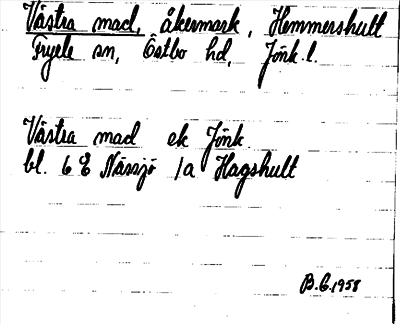 Västra mad, åkermark, Hemmershult
Fryele sn, Östbo hd, Jönk. l.
Västra mad ek Jönk.
bl. 6 E Nässjö 1a Hagshult
B.G. 1958